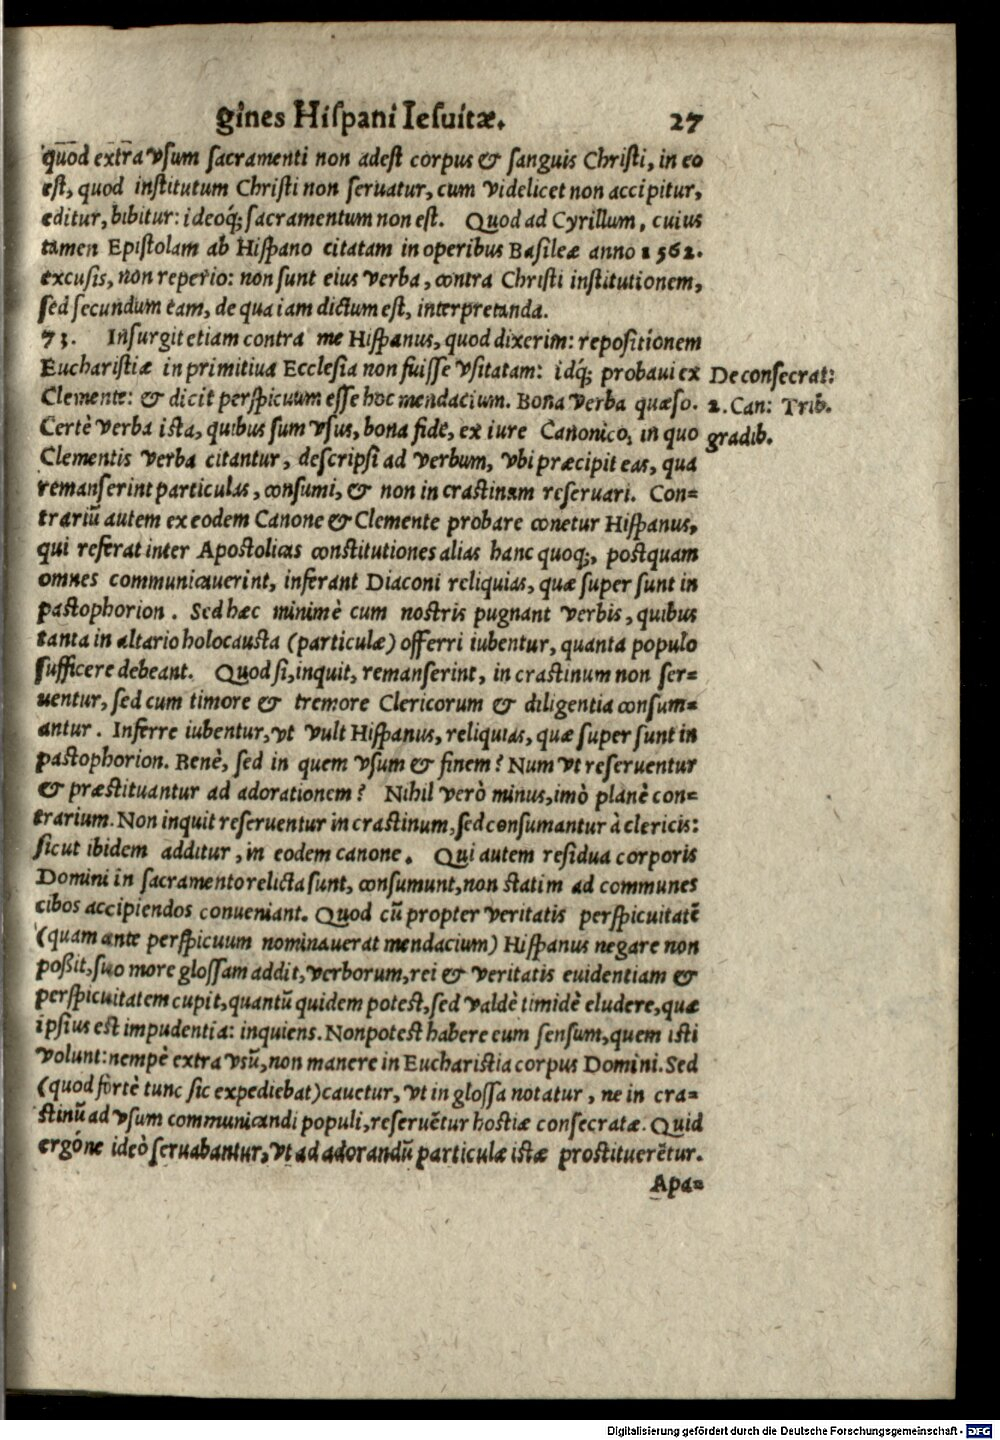 gines Hiſpani Ieſuitæ. 27
quod extra vſum ſacramenti non adeſt corpus & ſanguis Chriſti, in eo
eſt, quod inſtitutum Chriſti non ſeruatur, cum videlicet non accipitur,
editur, bibitur: ideoq́; ſacramentum non eſt. Quod ad Cyrillum, cuius
tamen Epiſtolam ab Hiſpano citatam in operibus Baſileæ anno 1562.
excuſis, non reperio: non ſunt eius verba, contra Chriſti inſtitutionem,
ſed ſecundum eam, de qua iam dictum eſt, interpretanda.
73. Inſurgit etiam contra me Hiſpanus, quod dixerim: repoſitionem
Euchariſtiæ in primitiua Eccleſia non fuiſſe vſitatam: idq́; probaui ex
Clemente: & dicit perſpicuum eſſe hoc mendacium. Bona verba quæſo.
Certè verba iſta, quibus ſum vſus, bona fide, ex iure Canonico, in quo
Clementis verba citantur, deſcripſi ad verbum, vbi præcipit eas, qua
remanſerint particulas, conſumi, & non in craſtinum reſeruari. Con⸗
trariũ autem ex eodem Canone & Clemente probare conetur Hiſpanus,
qui referat inter Apoſtolicas conſtitutiones alias hanc quoq;, poſtquam
omnes communicauerint, inferant Diaconi reliquias, quæ ſuperſunt in
paſtophorion. Sed hæc minimè cum noſtris pugnant verbis, quibus
tanta in altario holocauſta (particulæ) offerri iubentur, quanta populo
ſufficere debeant. Quod ſi, inquit, remanſerint, in craſtinum non ſer⸗
uentur, ſed cum timore & tremore Clericorum & diligentia conſum⸗
antur. Inferre iubentur, vt vult Hiſpanus, reliquias, quæ ſuperſunt in
paſtophorion. Benè, ſed in quem vſum & finem? Num vt reſeruentur
& præſtituantur ad adorationem? Nihil verò minus, imò planè con⸗
trarium. Non inquit reſeruentur in craſtinum, ſed conſumantur à clericis:
ſicut ibidem additur, in eodem canone. Qui autem reſidua corporis
Domini in ſacramento relicta ſunt, conſumunt, non ſtatim ad communes
cibos accipiendos conueniant. Quod cũ propter veritatis perſpicuitatẽ
(quam ante perſpicuum nominauerat mendacium) Hiſpanus negare non
poßit, ſuo more gloſſam addit, verborum, rei & veritatis euidentiam &
perſpicuitatem cupit, quantũ quidem poteſt, ſed valdè timidè eludere, quæ
ipſius eſt impudentia: inquiens. Non poteſt habere eum ſenſum, quem iſti
volunt: nempè extra vſũ, non manere in Euchariſtia corpus Domini. Sed
(quod fortè tunc ſic expediebat) cauetur, vt in gloſſa notatur, ne in cra⸗
ſtinũ ad vſum communicandi populi, reſeruẽtur hoſtiæ conſecratæ. Quid
ergóne ideò ſeruabantur, vt ad adorandũ particulæ iſtæ proſtituerẽtur.
Apa⸗
De conſecrat:
2. Can: Trib.
gradib.
Digitalisierung gefördert durch die Deutsche Forschungsgemeinschaft - DFG